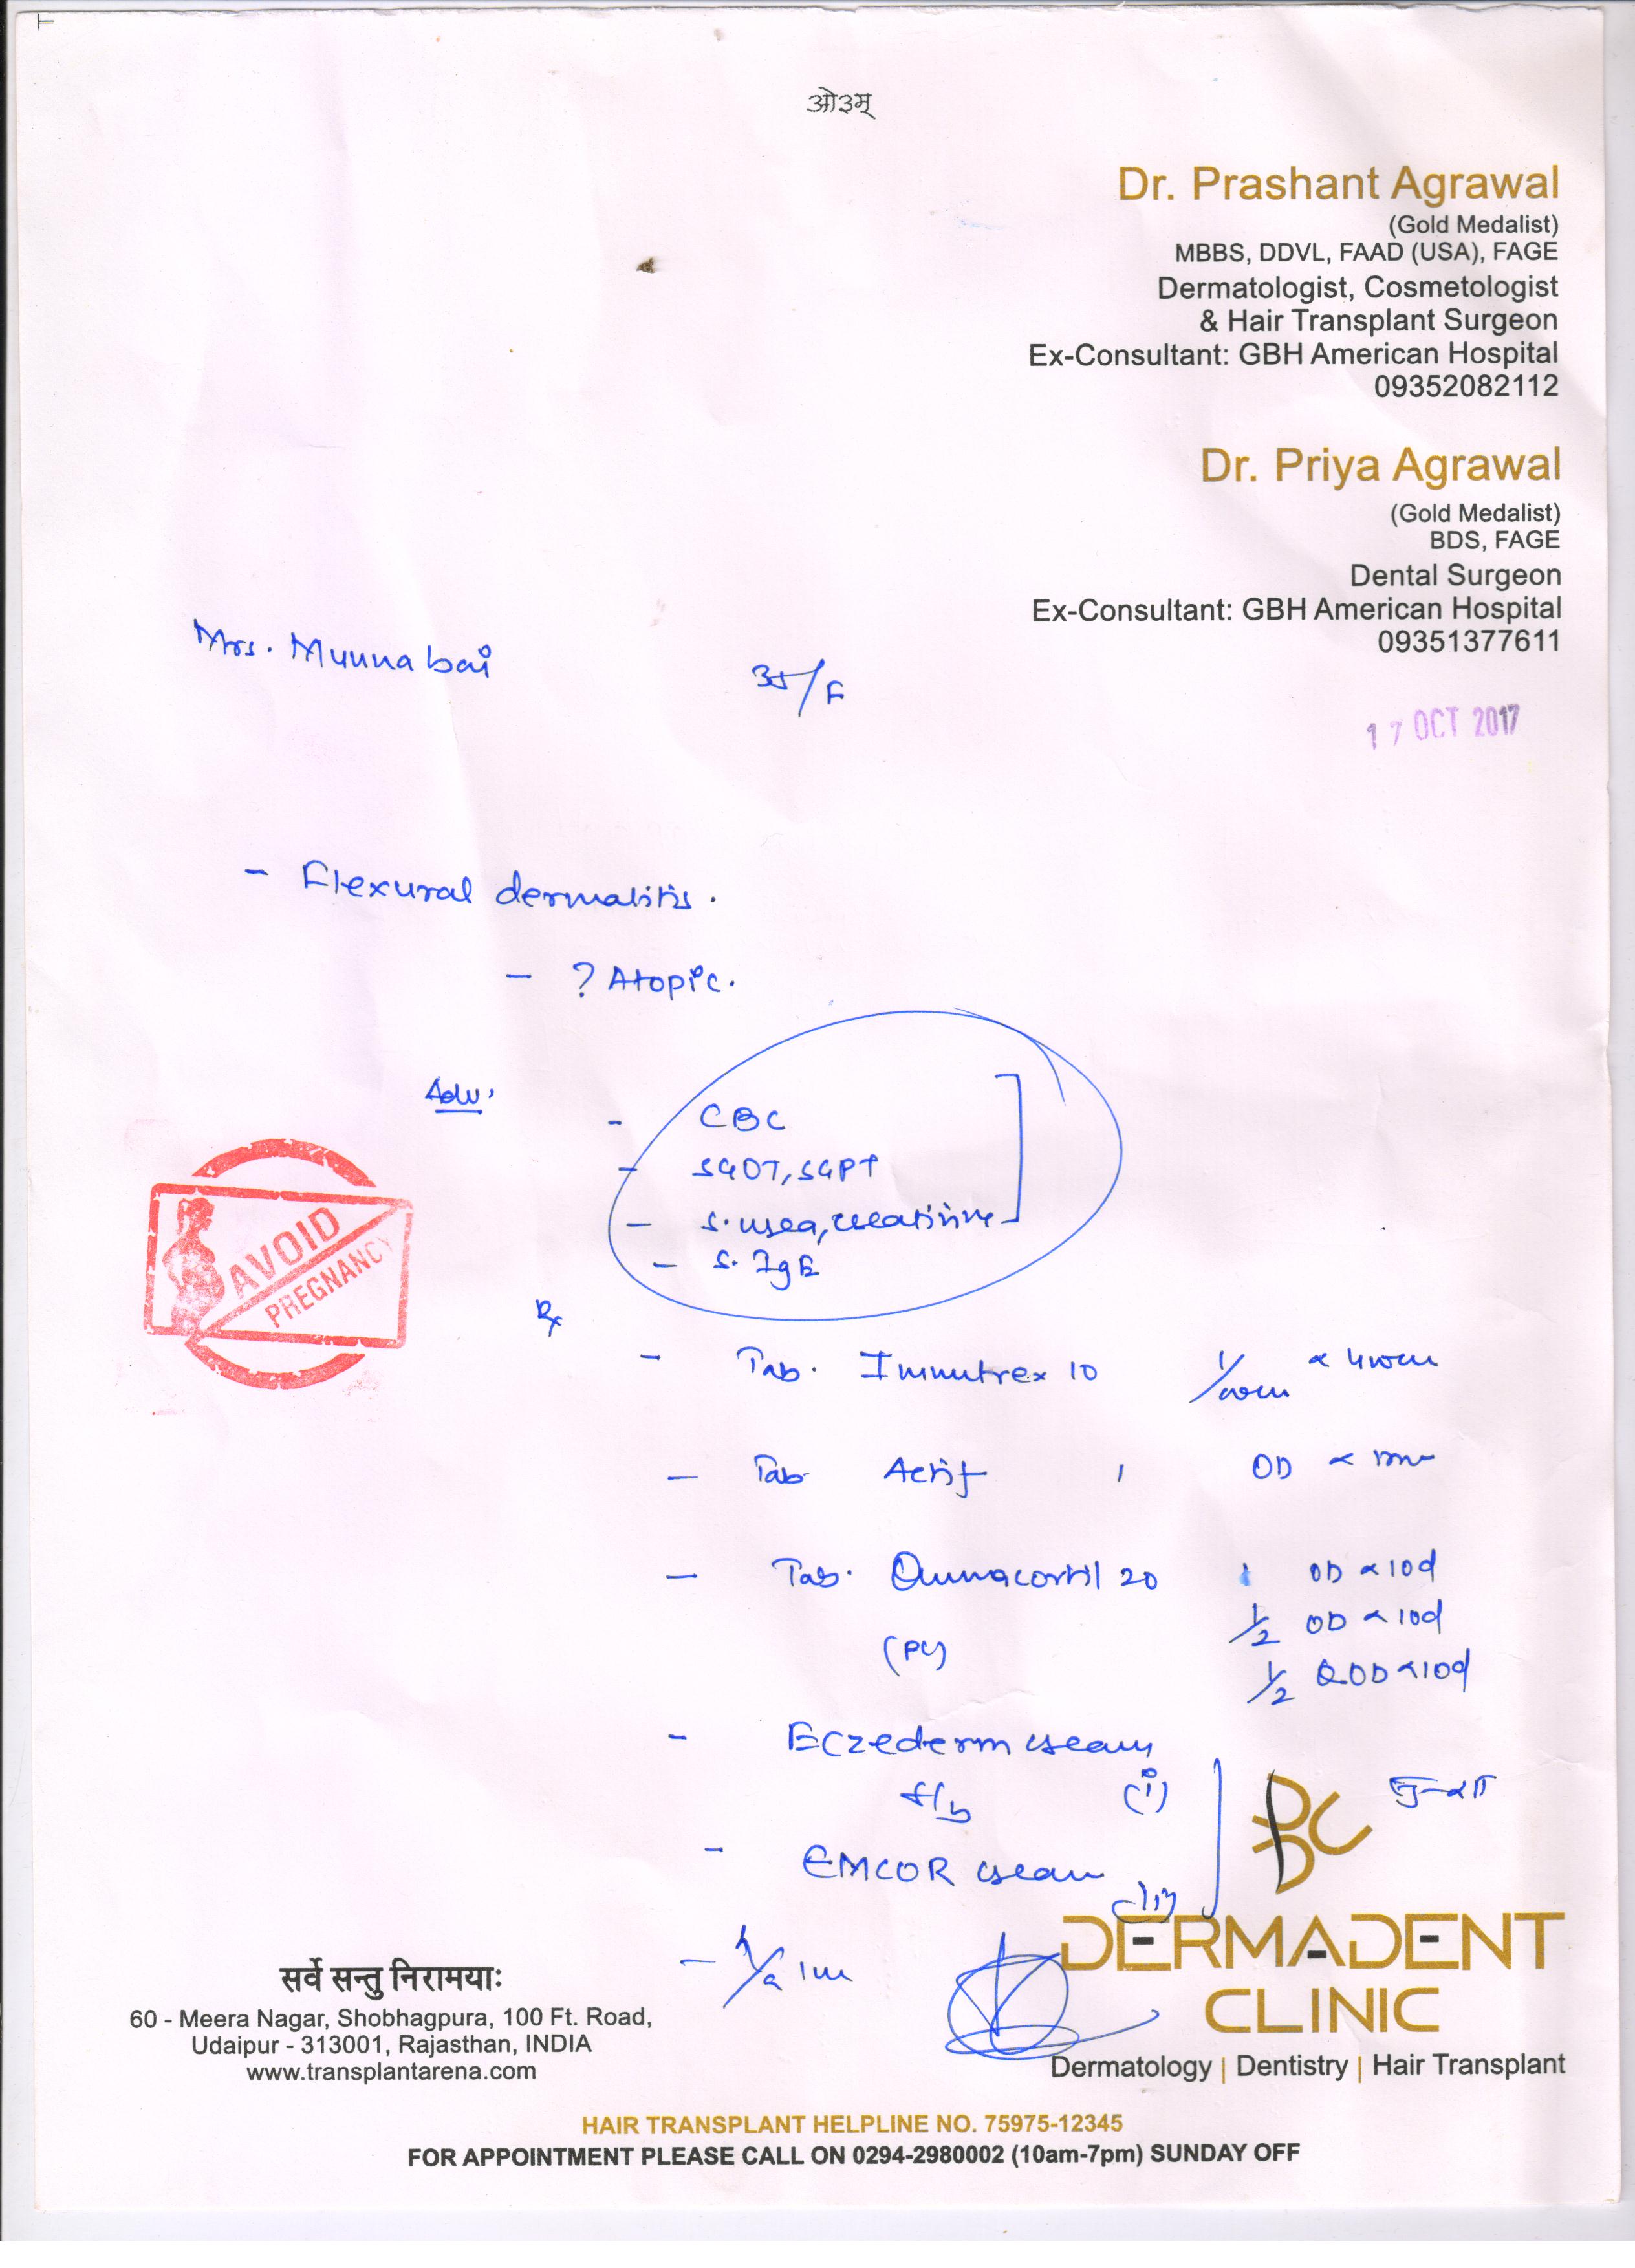 ओ३म्
Dr. Prashant Agrawal
(Gold Medalist)
MBBS, DDVL, FAAD (USA), FAGE
Dermatologist, Cosmetologist
& Hair Transplant Surgeon
Ex-Consultant: GBH American Hospital
09352082112
Dr. Priya Agrawal
(Gold Medalist)
BDS, FAGE
Dental Surgeon
Ex-Consultant: GBH American Hospital
09351377611
Mrs. Munna bai 35/F
17 OCT 2017
- Flexural dermatitis.
- ? Atopic.
Adv.
- CBC
- SGOT, SGPT
- S. urea, creatinine
- S. IgE
AVOID
PREGNANCY
Rx
- Tab. Immutrex 10 1/
- Tab. 1 OD x
- Tab. Omnacortil 20 1 OD x 10d
1/2 OD x 10d
(PC)
1/2 QOD x 10d
- Eczederm cream
f/b (i)
- EMCOR cream
BC
DERMADENT
CLINIC
Dermatology | Dentistry | Hair Transplant
सर्वे सन्तु निरामयाः
60 - Meera Nagar, Shobhagpura, 100 Ft. Road,
Udaipur - 313001, Rajasthan, INDIA
www.transplantarena.com
HAIR TRANSPLANT HELPLINE NO. 75975-12345
FOR APPOINTMENT PLEASE CALL ON 0294-2980002 (10am-7pm) SUNDAY OFF